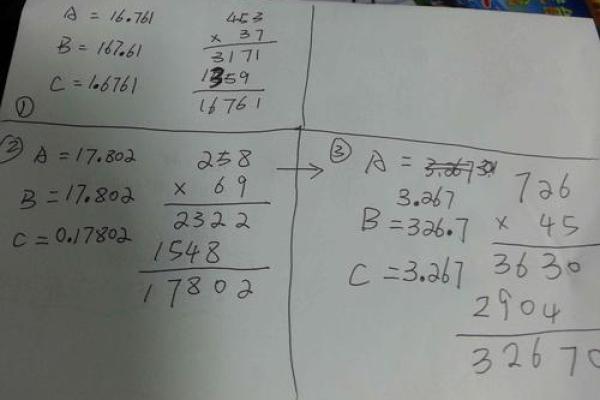 A = 16.761
B = 167.61
C = 1.6761
①
453
x 37
3171
1359
16761
②
A = 17.802
B = 17.802
C = 0.17802
258
x 69
2322
1548
17802
③
A =
3.267
B = 326.7
C = 3.267
726
x 45
3630
2904
32670